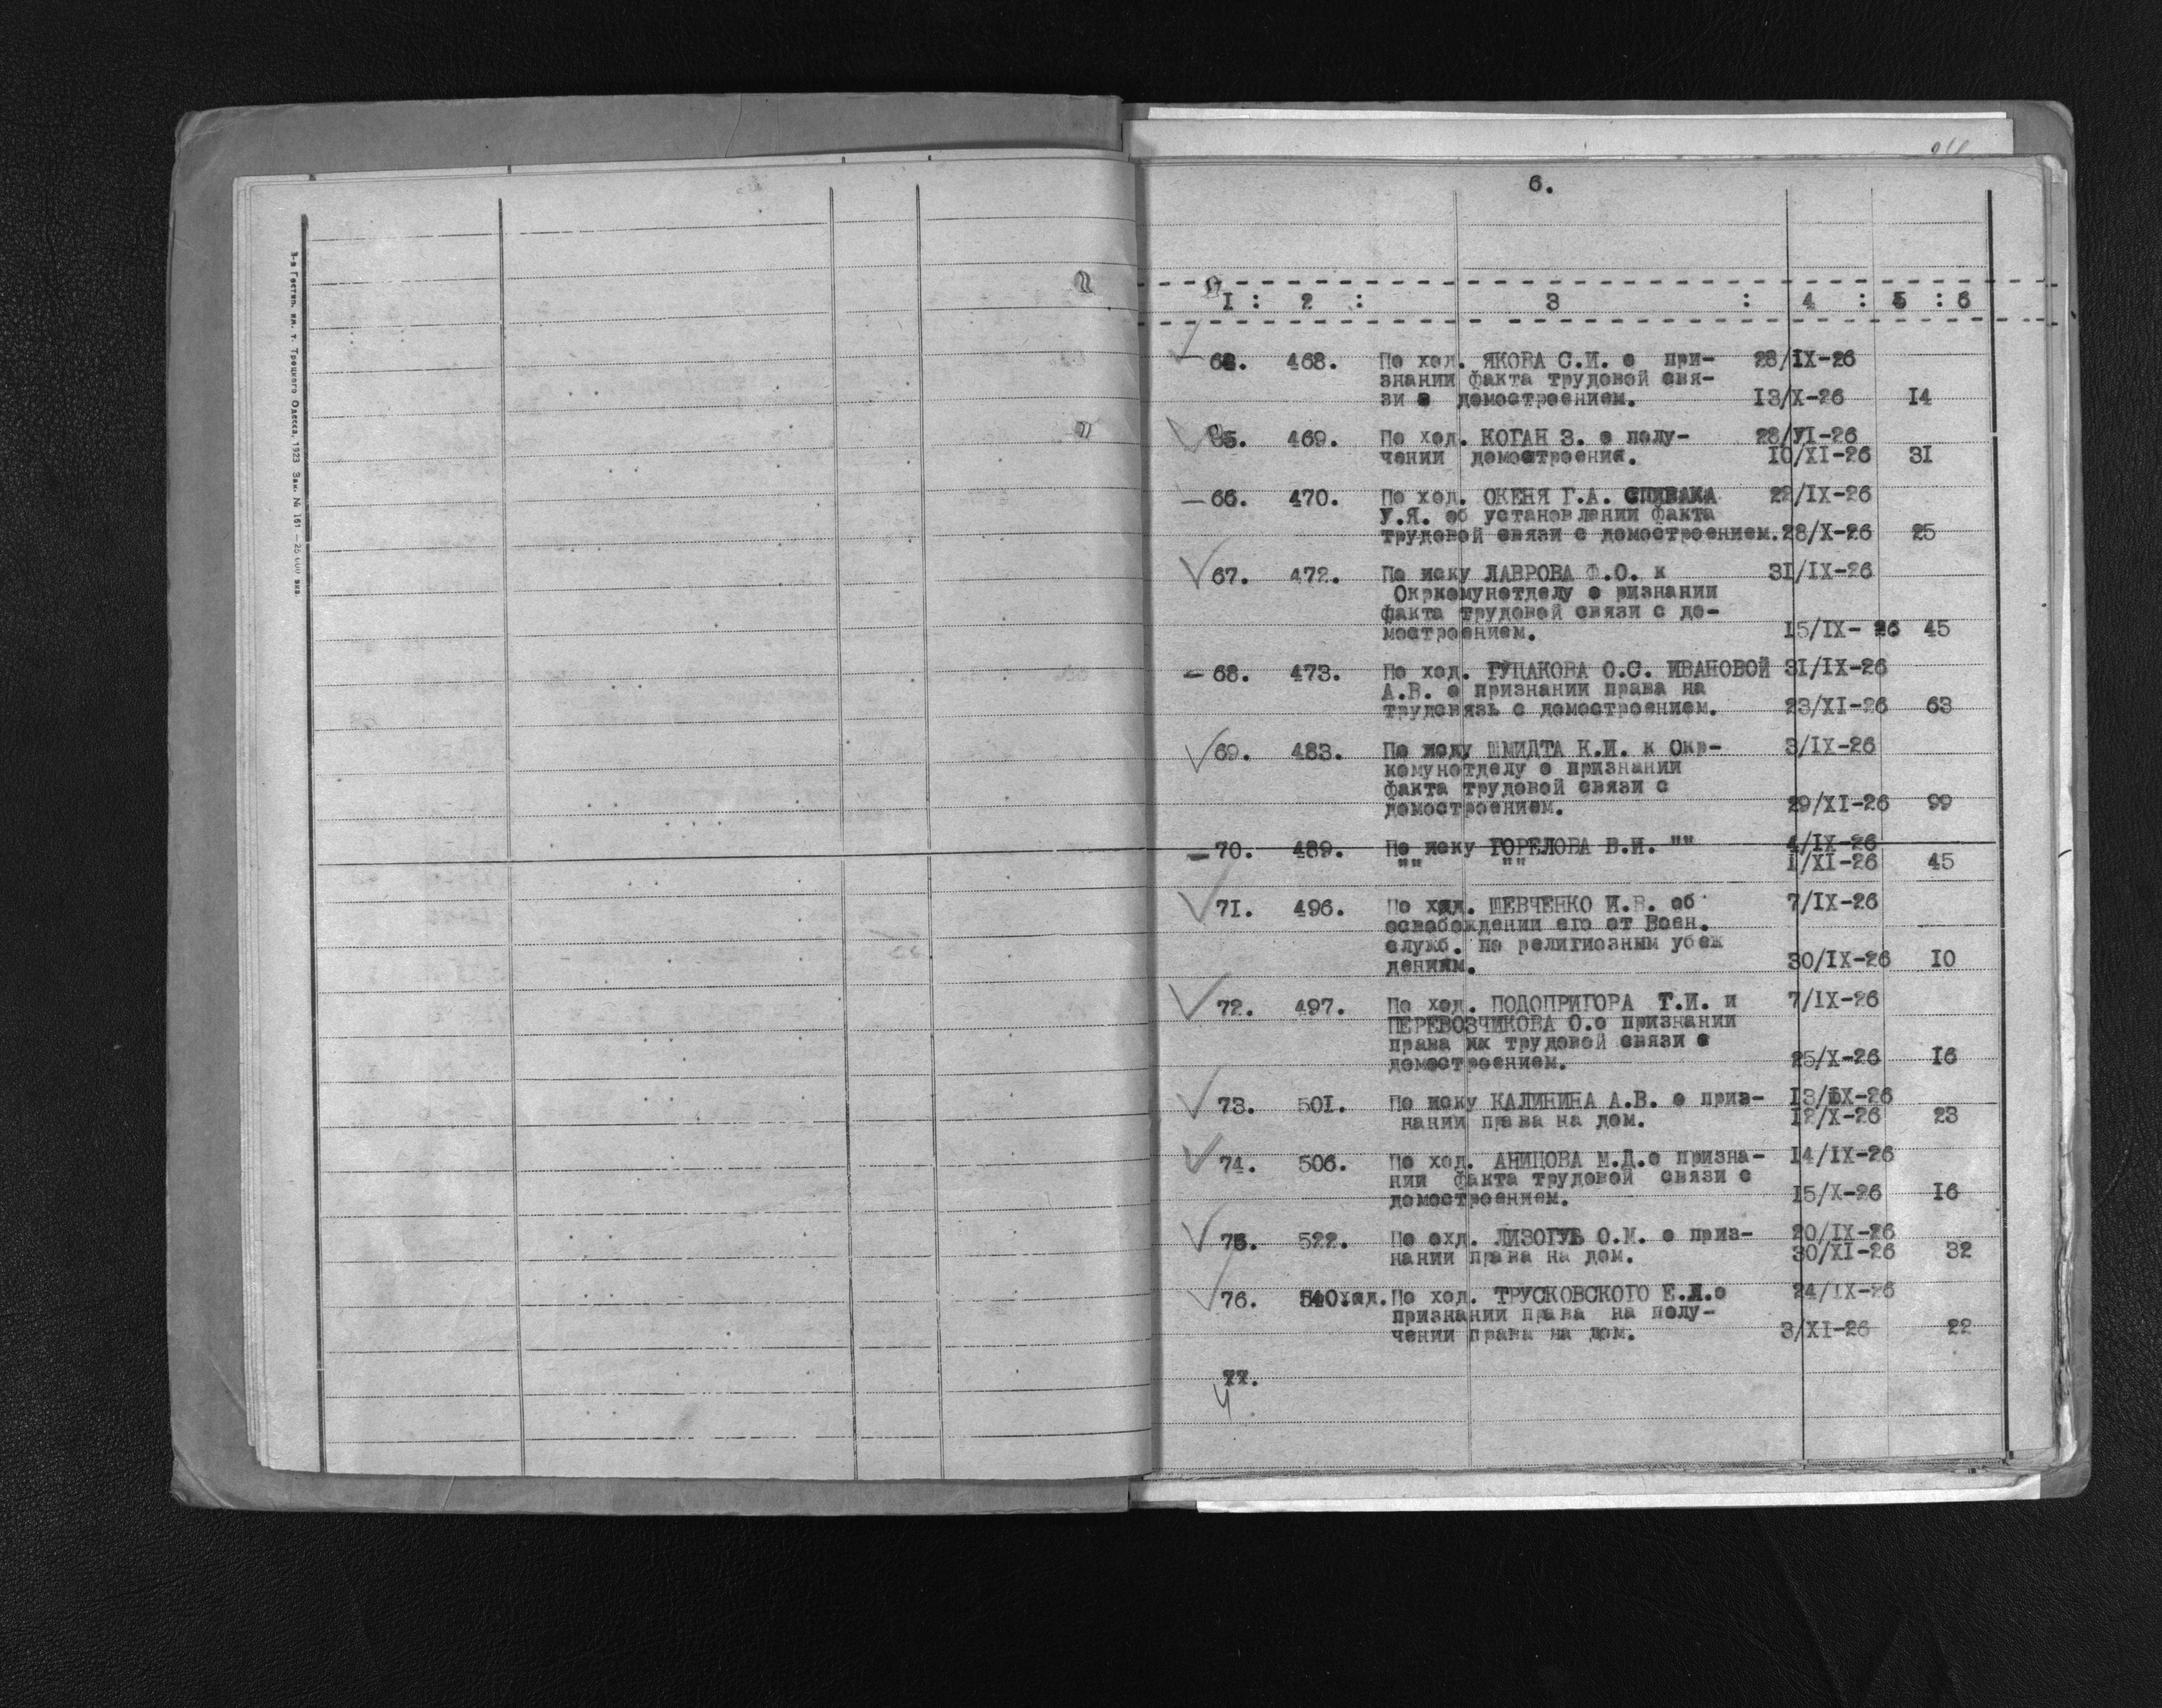 3-я Гостип. им. т. Троцкого Одесса, 1923 Зак. № 161 —25 000 экз.
6.
1 : 2 : 3 : 4 : 5 : 6
64. 468. По ход. ЯКОВА С.И. о при- 28/IX-26
знании факта трудовой свя-
зи с домостроением. 13/X-26 14
65. 469. По ход. КОГАН З. о полу- 28/УI-26
чении домостроения. 10/XI-26 31
— 66. 470. По ход. ОКЕНЯ Г.А. СПИВАКА 22/IX-26
У.Я. об установлении факта
трудовой связи с домостроением. 28/X-26 25
67. 472. По иску ЛАВРОВА Ф.О. к 31/IX-26
Окркомунотделу о ризнании
факта трудовой связи с до-
мостроением. 15/IX- 26 45
— 68. 473. По ход. ГУЦАКОВА О.С. ИВАНОВОЙ 31/IX-26
А.В. о признании права на
трудовязь с домостроением. 23/XI-26 63
69. 483. По иску ШМИДТА К.И. к Окр- 3/IX-26
комунотделу о признании
факта трудовой связи с
домостроением. 29/XI-26 99
— 70. 489. По иску ГОРЕЛОВА В.И. "" 4/IX-26
"" "" 1/XI-26 45
71. 496. По ход. ШЕВЧЕНКО И.В. об 7/IX-26
освобождении его от Воен.
служб. по религиозным убеж
дениям. 30/IX-26 10
72. 497. По ход. ПОДОПРИГОРА Т.И. и 7/IX-26
ПЕРЕВОЗЧИКОВА О.о признании
права их трудовой связи с
домостроением. 25/X-26 16
73. 501. По иску КАЛИНИНА А.В. о приз- 13/IX-26
нании права на дом. 12/X-26 23
74. 506. По ход. АНИЦОВА М.Д.о призна- 14/IX-26
нии факта трудовой связи с
домостроением. 15/X-26 16
75. 522. По охд. ЛИЗОГУБ О.М. о приз- 20/IX-26
нании права на дом. 30/XI-26 32
76. 540 По ход. ТРУСКОВСКОГО Е.Л.о 24/IX-26
признании права на полу-
чении права на дом. 3/XI-26 22
77.